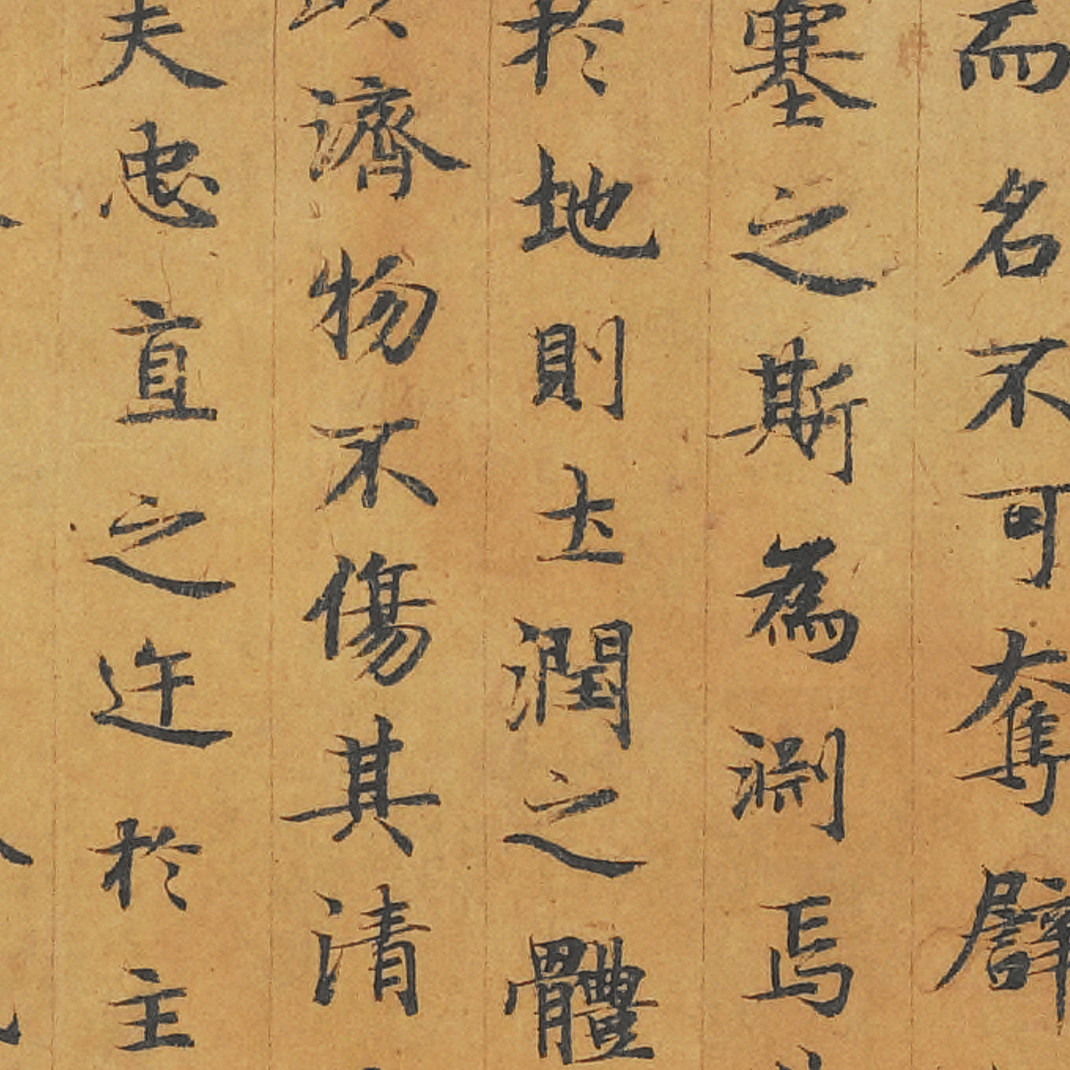 而名不可奪譬
塞之斯為淵焉
於地則土潤之體
濟物不傷其清
夫忠直之迕於主